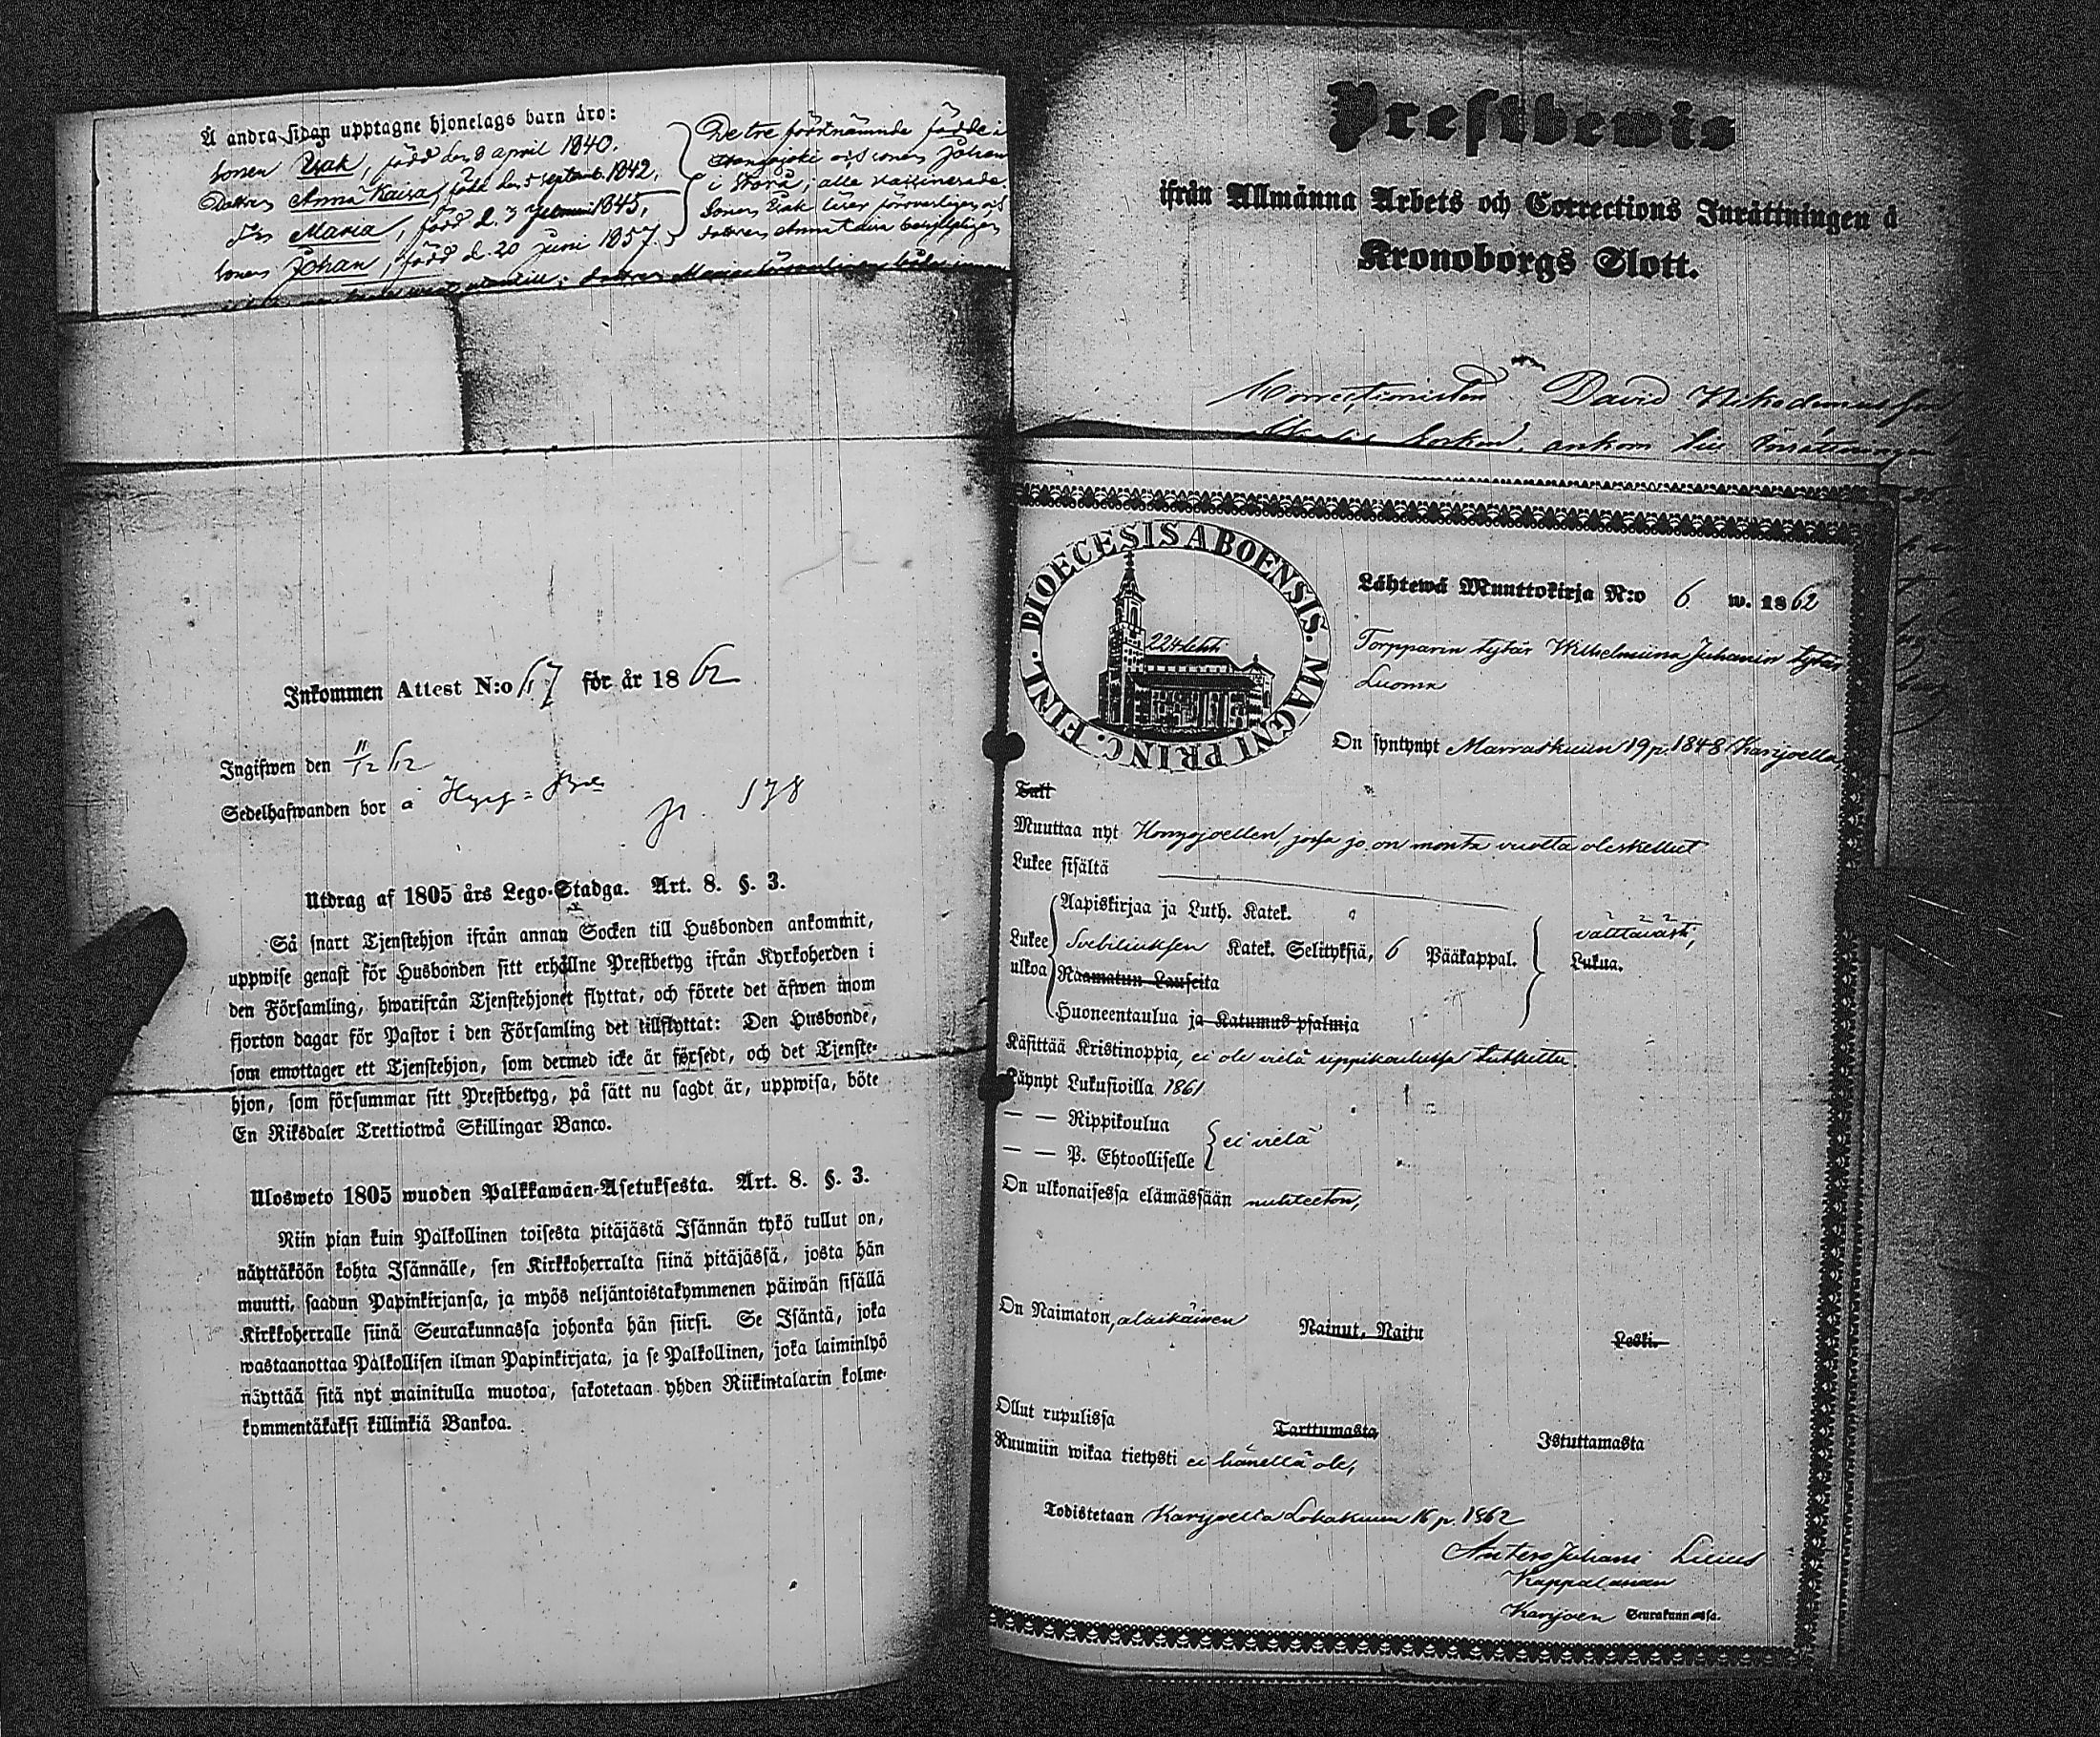 Å andra sidan upptagne hjonelags barn äro:
Sonen Isak, född den 8 april 1840.
Dottren Anna Kaisa, född den 5 septemb. 1842,
Maria, född d. 3 1845,
Sonen Johan, född d. 20 juni 1857.
De tre förstnämnde födde i
och sonen Johan
i Storå; alla vaccinerade.
Sonen Isak
dottren Anna Kaisa
dottren Maria
Inkommen Attest N:o 17 för år 1862
Ingifwen den 11/12 62
Sedelhafwanden bor å
p. 178
Utdrag af 1805 års Lego-Stadga. Art. 8. §. 3.
Så snart Tjenstehjon ifrån annan Socken till Husbonden ankommit,
uppwise genast för Husbonden sitt erhållne Prestbetyg ifrån Kyrkoherden i
den Församling, hwarifrån Tjenstehjonet flyttat, och förete det äfwen inom
fjorton dagar för Pastor i den Församling det tillflyttat: Den Husbonde,
som emottager ett Tjenstehjon, som dermed icke är försedt, och det Tjenste-
hjon, som försummar sitt Prestbetyg, på sätt nu sagdt är, uppwisa, böte
En Riksdaler Trettiotwå Skillingar Banco.
Ulosweto 1805 wuoden Palkkawäen-Asetuksesta. Art. 8. §. 3.
Niin pian kuin Palkollinen toisesta pitäjästä Isännän tykö tullut on,
näyttäköön kohta Isännälle, sen Kirkkoherralta siinä pitäjässä, josta hän
muutti, saadun Papinkirjansa, ja myös neljäntoistakymmenen päiwän sisällä
Kirkkoherralle siinä Seurakunnassa johonka hän siirsi. Se Isäntä, joka
wastaanottaa Palkollisen ilman Papinkirjata, ja se Palkollinen, joka laiminlyö
näyttää sitä nyt mainitulla muotoa, sakotetaan yhden Riikintalarin kolme-
kymmentäkaksi killinkiä Bankoa.
Prestbewis
ifrån Allmänna Arbets och Corrections Inrättningen å
Kronoborgs Slott.
Correctionisten David Nikodemusson
ankom till Inrättningen
DIOECESIS ABOENSIS. MAGNI PRINC. FINL.
224 lehti
Lähtewä Muuttokirja N:o 6 w. 1862
Torpparin tytär Wilhelmiina Juhanin tytär
Luoma
On syntynyt Marraskuun 19 p. 1848 Karijoella
Tull
Muuttaa nyt Honojoellen, jossa jo on monta vuotta oleskellut
Lukee sisältä
Lukee
ulkoa
Aapiskirjaa ja Luth. Katek.
Svebiliuksen Katek. Selityksiä, 6 Pääkappal.
Raamatun Lauseita
Huoneentaulua ja Katumus-psalmia
välttävästi,
Lukua.
Käsittää Kristinoppia, ei ole vielä rippikoulussa tutkittu.
Käynyt Lukusioilla 1861
— — Rippikoulua
— — P. Ehtoolliselle
ei vielä
On ulkonaisessa elämässään nuhteeton,
On Naimaton, alaikäinen Nainut, Naitu Leski.
Ollut rupulissa Tarttumasta Istuttamasta
Ruumiin wikaa tietysti ei hänellä ole,
Todistetaan Karijoella Lokakuun 16 p. 1862
Antero Juhani Lilius
Kappalainen
Karijoen Seurakunnassa.